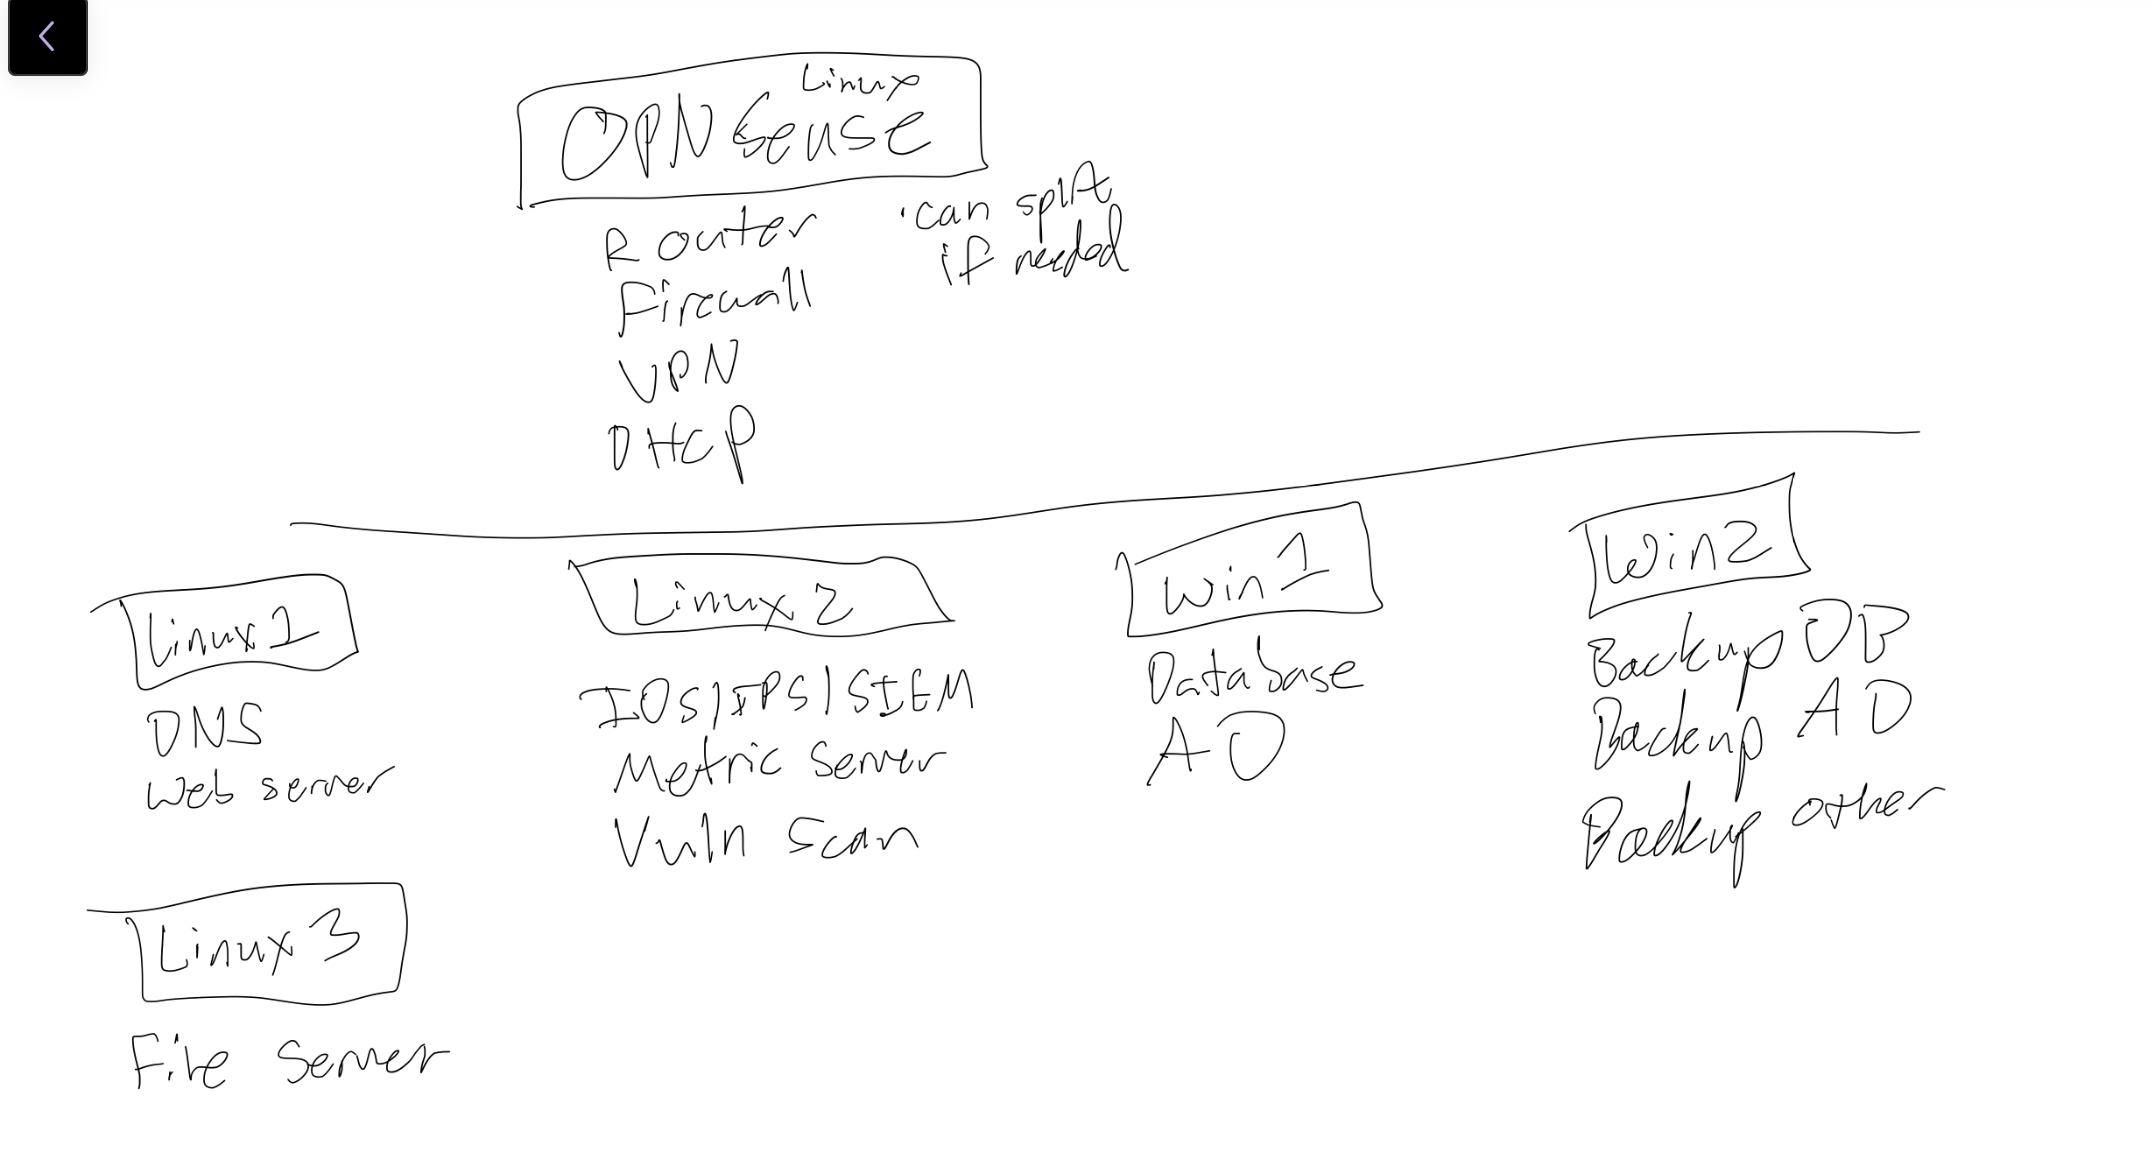 Linux
OPNSense
Router
Firewall
VPN
DHCP
·can split
if needed
Linux 1
DNS
Web server
Linux 2
IDS/IPS/SIEM
Metric Server
Vuln Scan
Win 1
Database
AD
Win 2
Backup DB
Backup AD
Backup other
Linux 3
File Server